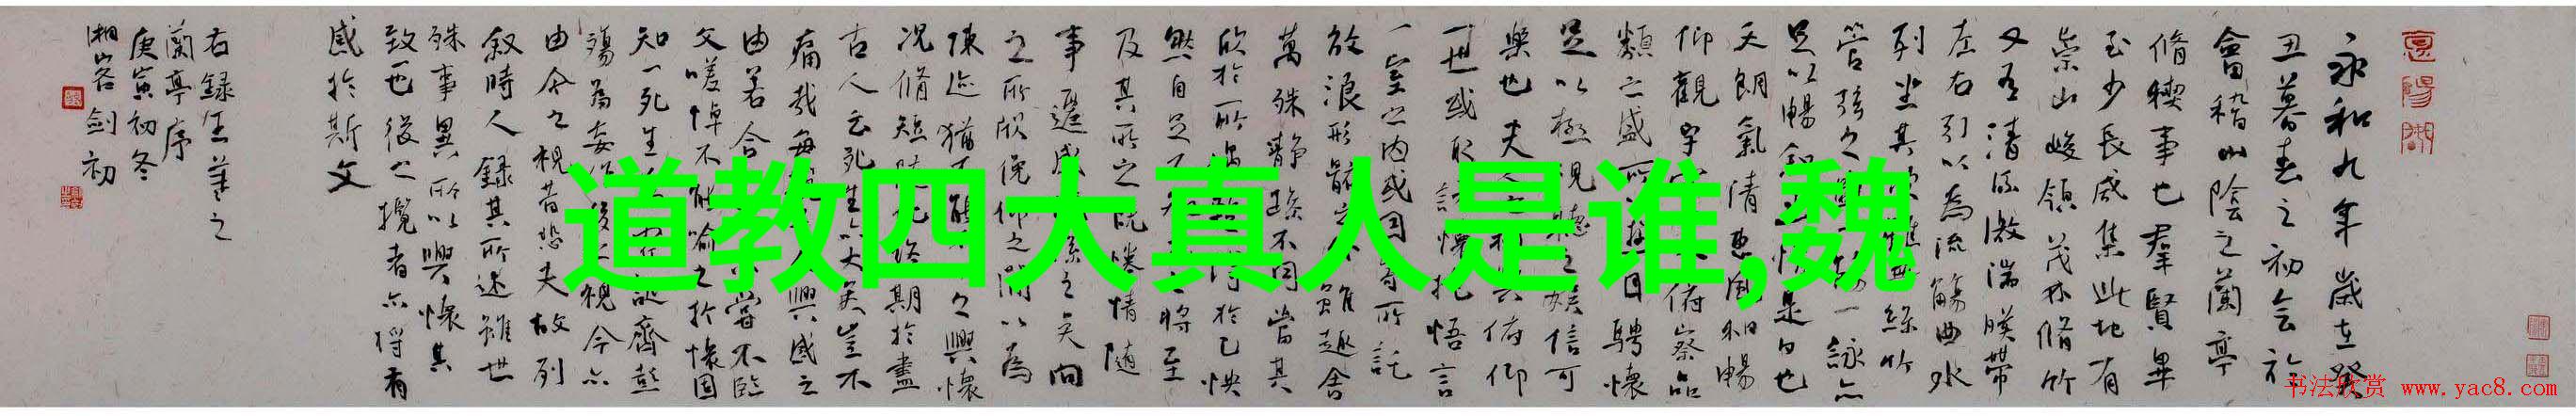 永和九年歲在癸
丑暮春之初会於
會稽山陰之蘭亭
脩稧事也羣賢畢
至少長咸集此地有
崇山峻領茂林脩竹
又有清流激湍暎帶
左右引以為流觴曲水
列坐其次雖無絲竹
管弦之盛一觴一詠亦
足以暢叙幽情是日也
天朗氣清惠風和暢
仰觀宇俯察品
類之盛所以遊目騁懷
足以極視聽之娛信可
樂也夫人之相與俯仰
一世或取諸懷抱悟言
一室之内或因寄所託
放浪形骸之外雖趣舍
萬殊靜躁不同當其
欣於所遇暫得於己快
然自足不知老之將至
及其所之既惓情隨
事遷感慨係之矣向
之所欣俛仰之閒以為
陳迹猶不能不以之興懷
況脩短隨化終期於盡
古人云死生亦大矣豈不
痛哉每攬昔人興感之
由若合一契未嘗不臨
文嗟悼不能喻之於懷固
知一死生為虛誕齊彭
殤為妄作後之視今亦
由今之視昔悲夫故列
叙時人錄其所述雖世
殊事異所以興懷其
致一也後之攬者亦将有
感於斯文
右録王羲之
蘭亭序
庚寅初冬
湘客剑初
道教四大真人是谁,魏
书法欣赏 www.yac8.com